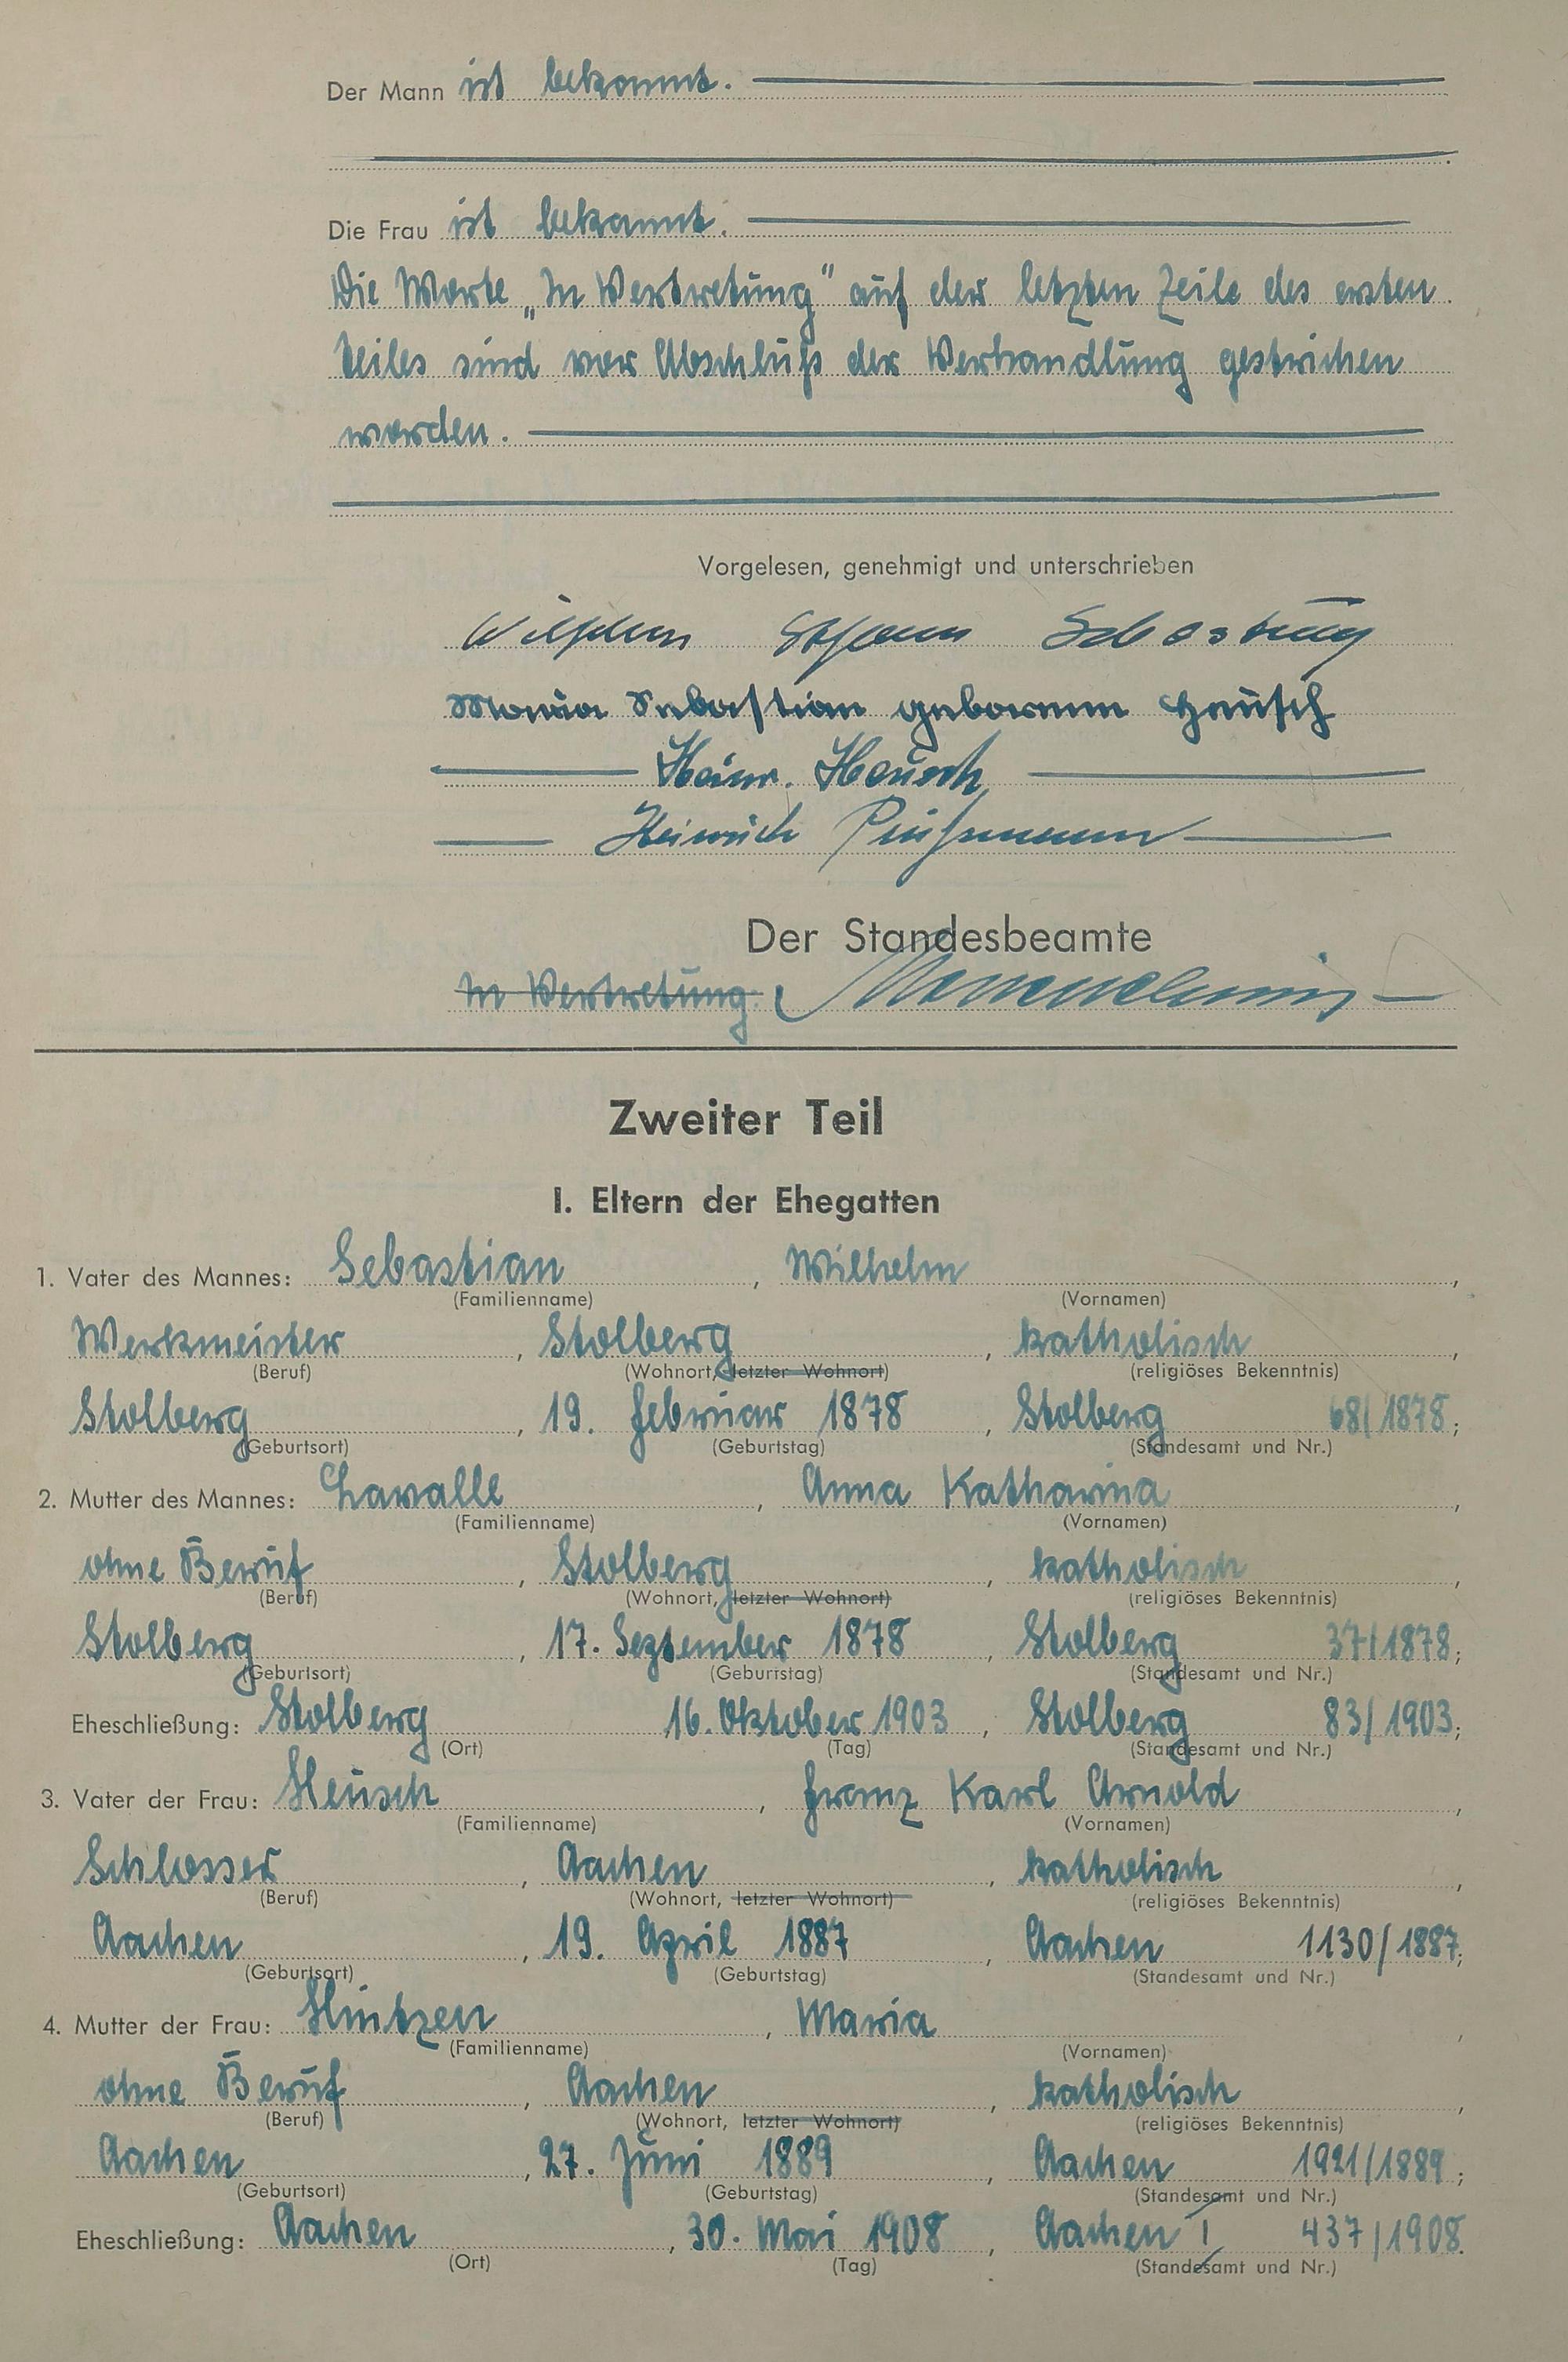 Der Mann ist bekannt.
Die Frau ist bekannt.
Die Worte „In Vertretung" auf der letzten Zeile des ersten
Teiles sind vor Abschluß der Verhandlung gestrichen
worden.
Vorgelesen, genehmigt und unterschrieben
Wilhelm Sebastian
Maria Sebastian geborenne Heusch
Heinr. Heusch
Heinrich
Der Standesbeamte
In Vertretung:
Zweiter Teil
I. Eltern der Ehegatten
1. Vater des Mannes: Sebastian, Wilhelm,
(Familienname) (Vornamen)
Werkmeister, Stolberg, katholisch,
(Beruf) (Wohnort, letzter Wohnort) (religiöses Bekenntnis)
Stolberg, 19. Februar 1878, Stolberg 68/1878;
(Geburtsort) (Geburtstag) (Standesamt und Nr.)
2. Mutter des Mannes: Lavalle, Anna Katharina,
(Familienname) (Vornamen)
ohne Beruf, Stolberg, katholisch,
(Beruf) (Wohnort, letzter Wohnort) (religiöses Bekenntnis)
Stolberg, 17. September 1878, Stolberg 371/1878;
(Geburtsort) (Geburtstag) (Standesamt und Nr.)
Eheschließung: Stolberg 16. Oktober 1903, Stolberg 83/1903;
(Ort) (Tag) (Standesamt und Nr.)
3. Vater der Frau: Heusch, Franz Karl Arnold,
(Familienname) (Vornamen)
Schlosser, Aachen, katholisch,
(Beruf) (Wohnort, letzter Wohnort) (religiöses Bekenntnis)
Aachen, 19. April 1887, Aachen 1130/1887;
(Geburtsort) (Geburtstag) (Standesamt und Nr.)
4. Mutter der Frau: Hintzen, Maria,
(Familienname) (Vornamen)
ohne Beruf, Aachen, katholisch,
(Beruf) (Wohnort, letzter Wohnort) (religiöses Bekenntnis)
Aachen, 27. Juni 1889, Aachen 1921/1889;
(Geburtsort) (Geburtstag) (Standesamt und Nr.)
Eheschließung: Aachen, 30. Mai 1908, Aachen I 437/1908.
(Ort) (Tag) (Standesamt und Nr.)